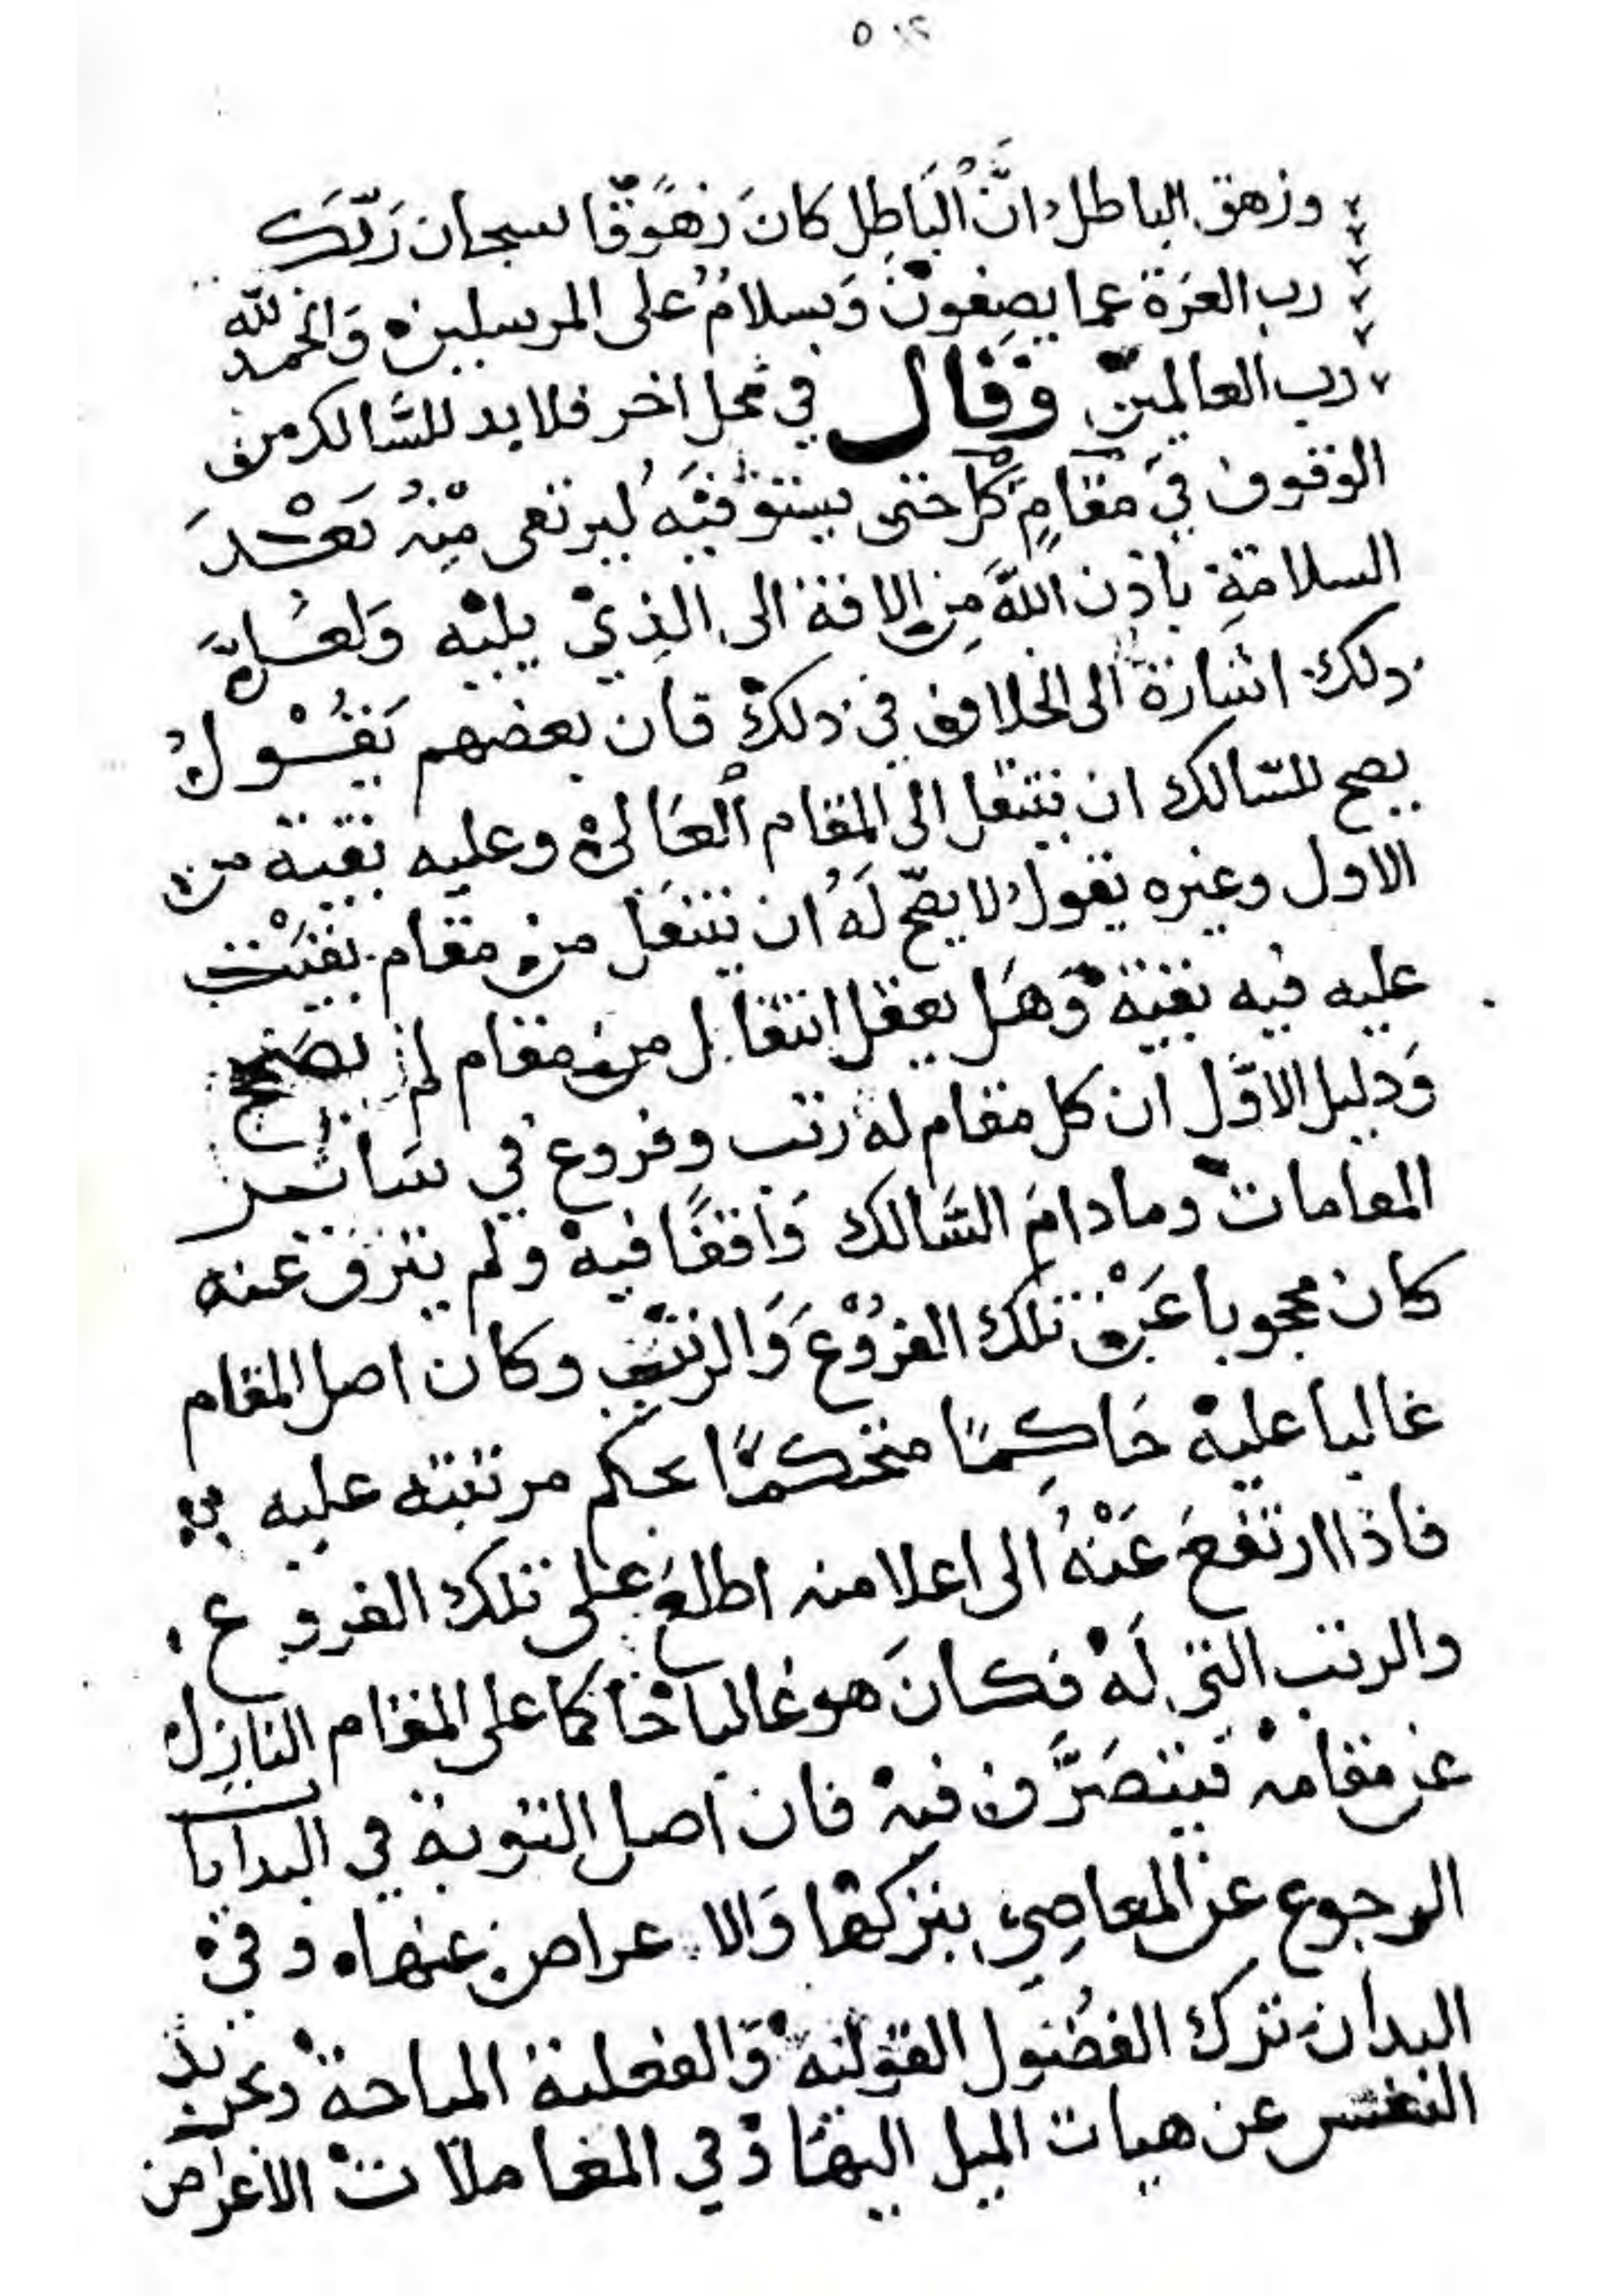 ٥٠٢
وزهق الباطل انَّ الْبَاطِل كَانَ زهُوْقًا سبحان رَبّكَ
رب العزة عما يصِفونْ وَسلامُ على المرسلين وَالحمد لله
رب العالمين وَقَال في محل اخر فلا بد للسَّالك من
الوقوف في مقَامٍ كل حتى يستوفيَه ليرتقى مِنْهُ بَعْدَ
السلامةِ باذن اللهَ مِن الافة الى الذِيْ يليْه وَلعَلَّ
ذلك اشارة الى الخلاف في ذلك فان بعضهم يَقُوْلُ
يصح للسّالك ان ينتقل الى المقام الْعَالىْ وعليه بقية من
الاول وغيره يقولُ لا يصحّ لَهُ ان ينتقل من مقام بقيَتْ
عليه فيه بقية وَهَل يعقل انتقال من مقام لم يصَحح
وَدليل الاوّل ان كل مقام له رتب وفروع في سَائر
المقامات وما دامَ السَّالك وَاقفًا فيهْ ولم يترق عنه
كان محجوبا عَنْ تلك الفرُوْعَ وَالرتَب وكان اصل المقام
غالبا عليهْ حَاكِمًا متحكمًا بحكم مرتبته عليه
فاذا ارتفعَ عَنْهُ الى اعلا منه اطلعَ على تلك الفروع
والرتب التي لَهْ فكانَ هو غالبا حَاكما على المقام النازِل
عن مقامهْ فيتصَرَّف فيهْ فان اصل التوبة في البدايا
الرجوع عن المعاصِي بتركهَا وَالاعراض عنها وفي
البدان ترك الفضُول القوليةْ وَالفعلية المباحةْ وتجريد
النفس عن هيات الميل اليهَا وَفي المعاملاتْ الاعراض